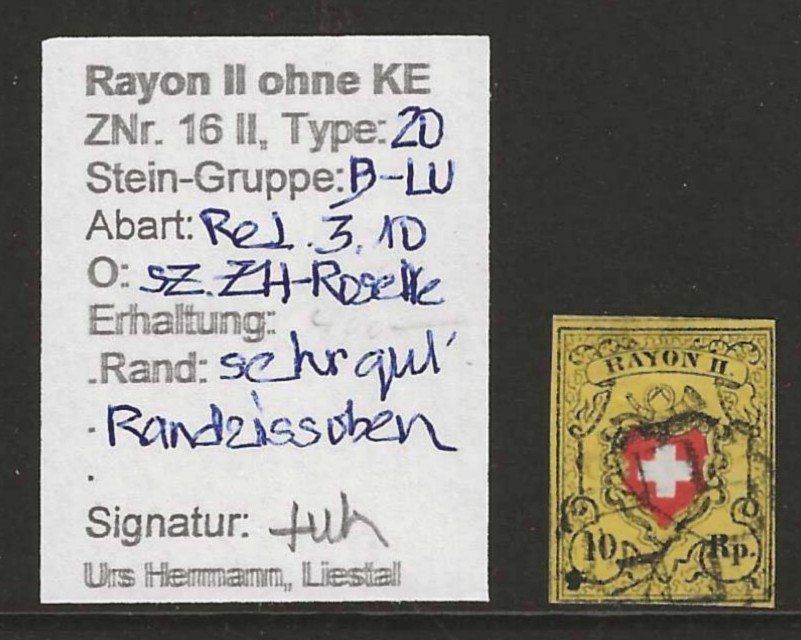 Rayon II ohne KE
ZNr. 16 II, Type: 20
Stein-Gruppe: B-LU
Abart: Ret. 3.10
O: sz. ZH-Rosette
Erhaltung:
.Rand: sehr gut
. Randriss oben
.
Signatur:
Urs Hermann, Liestal
RAYON II.
10 Rp.